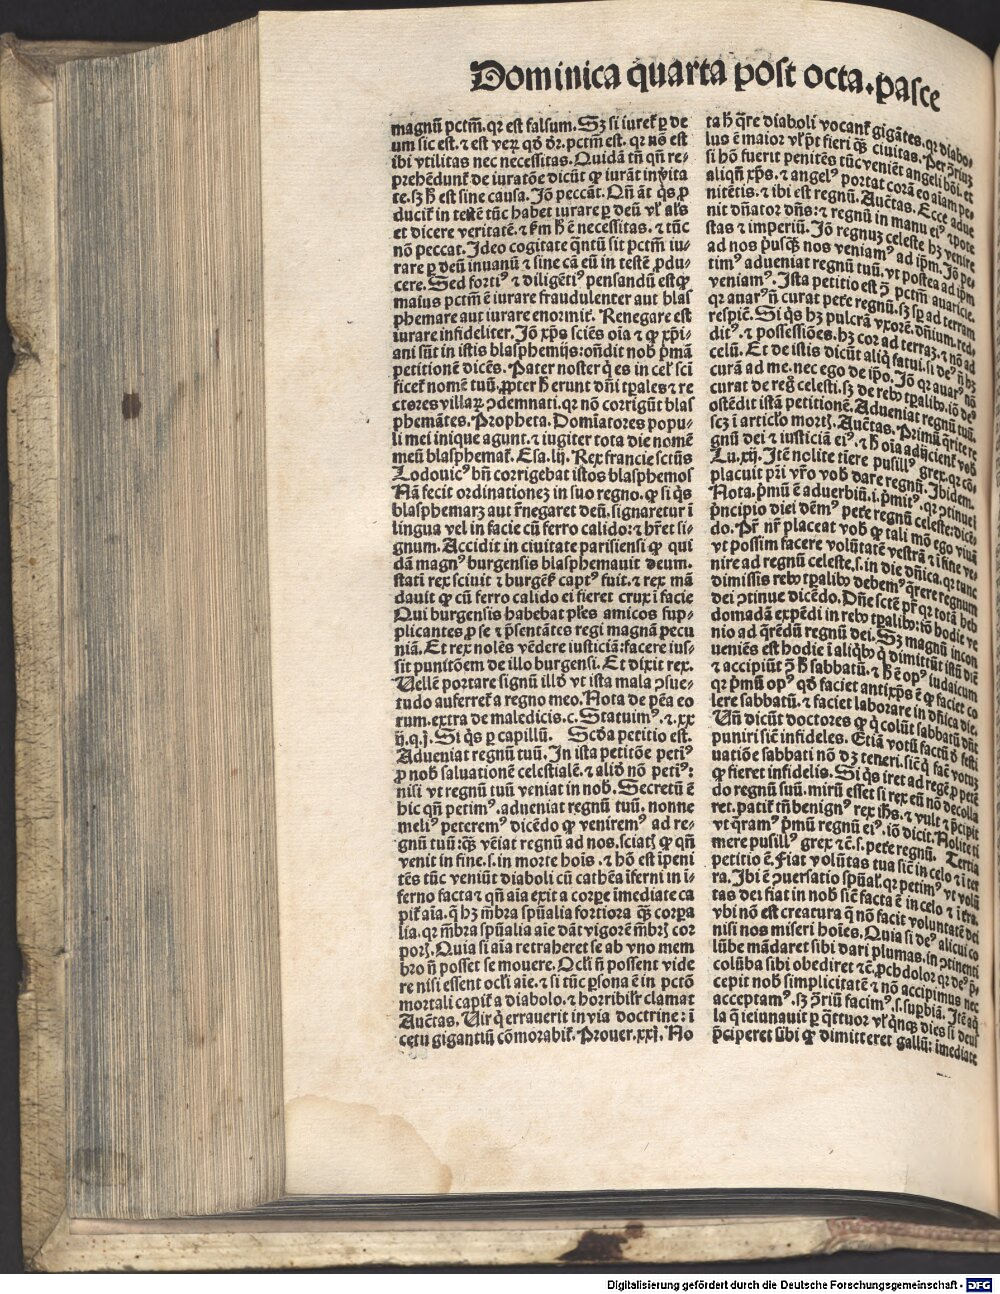 Dominica quarta post octa. pasce
magnū pctm̄. qr est falsum. Sꝫ si iureꝉ p de
um sic est. ⁊ est veꝝ qd̓ dr̄. pctm̄ est. qr nō est
ibi vtilitas nec necessitas. Quidā tn̄ qn̄ re-
prehēdunt̄ de iuratōe dicūt ꝙ iurāt inuita
te. sꝫ h̄ est sine causa. Jō peccāt. Qn̄ āt q̄s ꝓ
ducit̄ in testē tūc habet iurare p deū vl̓ al̓s
et dicere veritatē. ⁊ km̄ h̄ ē necessitas. ⁊ tūc
nō peccat. Jdeo cogitate q̄ntū sit pctm̄ iu-
rare p deū inuanū ⁊ sine cā eū in testē ꝓdu-
cere. Sed fortiꝰ ⁊ diligētiꝰ pensandū est ꝙ
maius pctm̄ ē iurare fraudulenter aut blas
phemare aut iurare enormit̄. Renegare est
iurare infideliter. Jō xp̄s sciēs oīa ⁊ ꝙ xp̄i-
ani sūt in istis blasphemijs: on̄dit nob̓ p̄mā
petitionē dicēs. Pater noster q̄ es in cel̓ sci
ficet̄ nomē tuū. ꝓpter h̄ erunt dn̄i tp̄ales ⁊ re
ctores villaꝝ ꝯdemnati. qr nō corrigūt blas
phemātes. Propheta. Domīatores popu-
li mei inique agunt. ⁊ iugiter tota die nomē
meū blasphemāt̄. Esa. lij. Rex francie sctūs
Lodouicꝰ bn̄ corrigebat istos blasphemos
Nā fecit ordinationeꝫ in suo regno. ꝙ si q̄s
blasphemaꝫ aut r̄negaret deū. signaretur ī
lingua vel in facie cū ferro calido: ⁊ hr̄et si-
gnum. Accidit in ciuitate parisiensi ꝙ qui
dā magnꝰ burgensis blasphemauit deum.
stati rex sciuit ⁊ burgēs̄ captꝰ fuit. ⁊ rex mā
dauit ꝙ cū ferro calido ei fieret crux ī facie
Qui burgensis habebat pl̓es amicos sup-
plicantes ꝓ se ⁊ p̄sentātes regi magnā pecu
niā. Et rex nolēs vēdere iusticiā: facere ius-
sit punitōem de illo burgensi. Et dixit rex.
Vellē portare signū illd̓ vt ista mala ꝯsue-
tudo auferret̄ a regno meo. Nota de pēa eo
rum. extra de maledicis. c. Statuimꝰ. ⁊. xx
ij. q. j. Si q̄s p capillū. Scd̓a petitio est.
Adueniat regnū tuū. In ista petitōe petiꝰ
ꝓ nob̓ saluationē celestialē. ⁊ aliō nō petiꝰ:
nisi vt regnū tuū veniat in nob̓. Secretū ē
hic qn̄ petimꝰ. adueniat regnū tuū. nonne
meliꝰ peteremꝰ dicēdo ꝙ veniremꝰ ad re-
gnū tuū: q̄ꝫ vēiat regnū ad nos. sciat̄ꝫ ꝙ qn̄
venit in fine. s. in morte hoīs. ⁊ hō est īpeni
tēs tūc veniūt diaboli cū cathēa īferni in ī-
ferno facta ⁊ qn̄ aīa exit a corpe īmediate ca
pit̄ aīa. q̄ hꝫ mēbra spūalia fortiora q̄ꝫ corpa
lia. qr mēbra spūalia aīe dāt vigorē mēbrꝫ cor
porꝫ. Quia si aīa retraheret se ab vno mem
bro n̄ posset se mouere. Ocl̓i n̄ possent vide
re nisi essent ocl̓i aīe. ⁊ si tūc ꝑsona ē in pctō
mortali capit̄ a diabolo. ⁊ horribilr̄ clamat
Auc̄tas. Vir q̄ errauerit in via doctrine: ī
cetu gigantiū cōmorabit̄. Prouer. xxj. No
ta h̄ q̄re diaboli vocant̄ gigātes. qr diabo-
lus ē maior vl̓ pt̄ fieri q̄ꝫ ciuitas. Per ꝯ̄riuꝫ
si hō fuerit penitēs tūc veniēt angeli boī. et
aliqn̄ xp̄s. ⁊ angelꝰ portat corā eo aīam pe-
nitētis. ⁊ ibi est regnū. Auc̄tas. Ecce adue
nit dn̄ator dn̄s: ⁊ regnū in manu eiꝰ ⁊ pote
stas ⁊ imperiū. Jō regnuꝫ celeste hꝫ venire
ad nos p̄usq̄ꝫ nos veniamꝰ ad ip̄m. Jō pe-
timꝰ adueniat regnū tuū. vt postea ad ip̄m
veniamꝰ. Ista petitio est ꝯ̄ pctm̄ auaricie.
qr auarꝰ n̄ curat petē regnū. sꝫ sp̄ ad terram
respic̄. Si q̄s hꝫ pulcrā vxorē. dn̄ium. red-
ditꝰ. ⁊ possessiōes. hꝫ cor ad terraꝫ. ⁊ nō ad
celū. Et de istis dicūt aliq̄ fatui. si deꝰ n̄ hꝫ
curā ad me. nec ego de ip̄o. Jō qr auarꝰ nō
curat de reg̓ celesti. sꝫ de rebꝰ tp̄alibꝰ. iō deꝰ
ostēdit istā petitionē. Adueniat regnū tuū.
scꝫ ī articl̓o mortꝫ. Auc̄tas. Primū q̄rite re
gnū dei ⁊ iusticiā eiꝰ. ⁊ h̄ oīa adijcient̄ vob̓
Lu. xij. Itē nolite tīere pusillꝰ grex. qr cō-
placuit pr̄i vr̄o vob̓ dare regnū. Ibidem.
Nota. p̄mū ē aduerbiū. i. p̄mitꝰ. qr ꝯtinuel
p̄ncipio diei dēmꝰ petē regnū celeste: dicē-
do. Pr̄ nr̄ placeat vob̓ ꝙ tali mō ego viuā
vt possim facere volūtatē vestrā ⁊ ī fine ve-
nire ad regnū celeste. s. in die dn̄ica. qr tunc
dimissis rebꝰ tp̄alibꝰ debemꝰ q̄rere regnum
dei ꝯtinue dicēdo. Dn̄e sctē pr̄ qr totā heb
domadā expēdi in rebꝰ tp̄alibꝰ: iō hodie ve
nio ad q̄rēdū regnū dei. Sꝫ magnū incon
ueniēs est hodie ī aliq̄bꝰ q̄ dimittūt istū diē
⁊ accipiūt ꝯ̄ h̄ sabbatū. ⁊ h̄ ē opꝰ iudaicum
qr p̄mū opꝰ qd̓ faciet antixp̄s ē ꝙ faciet co
lere sabbatū. ⁊ faciet laborare in dn̄ica die.
Vn̄ dicūt doctores ꝙ q̄ colūt sabbatū dn̄t
puniri sic̄ infideles. Etiā votū factū d̓ festi
uatiōe sabbati nō dꝫ teneri. sic̄ q̄ faē votuꝫ
ꝙ fieret infidelis. Si q̄s iret ad regē ꝓ petē
do regnū suū. mirū esset si rex eū nō decolla
ret. patit̄ tn̄ benignꝰ rex ih̄s. ⁊ vult ⁊ p̄cipit
vt q̄ramꝰ p̄mū regnū eiꝰ. iō dicit. Nolite ti
mere pusillꝰ grex ⁊ c̄. s. petē regnū. Tertia
petitio ē. Fiat volūtas tua sic̄ in celo ⁊ ī ter
ra. Ibi ē ꝯuersatio spūal̓. qr petimꝰ vt volū
tas dei fiat in nob̓ sic̄ facta ē in celo ⁊ ī t̄ra.
vbi nō est creatura q̄ nō facit voluntatē dei
nisi nos miseri hoīes. Quia si deꝰ alicui co
lūbe mādaret sibi dari plumas. in ꝯtinenti
colūba sibi obediret ⁊ c̄. ꝓch dolor qr deꝰ p̄-
cepit nob̓ simplicitatē ⁊ nō accipimus nec
acceptamꝰ. sꝫ ꝯ̄riū facimꝰ. s. suꝑbiā. Itē aq̄
la q̄ ieiunauit p q̄ttuor vl̓ q̄nqꝫ dies si deus
p̄ciperet sibi ꝙ dimitteret gallū: īmediate
Digitalisierung gefördert durch die Deutsche Forschungsgemeinschaft - DFG